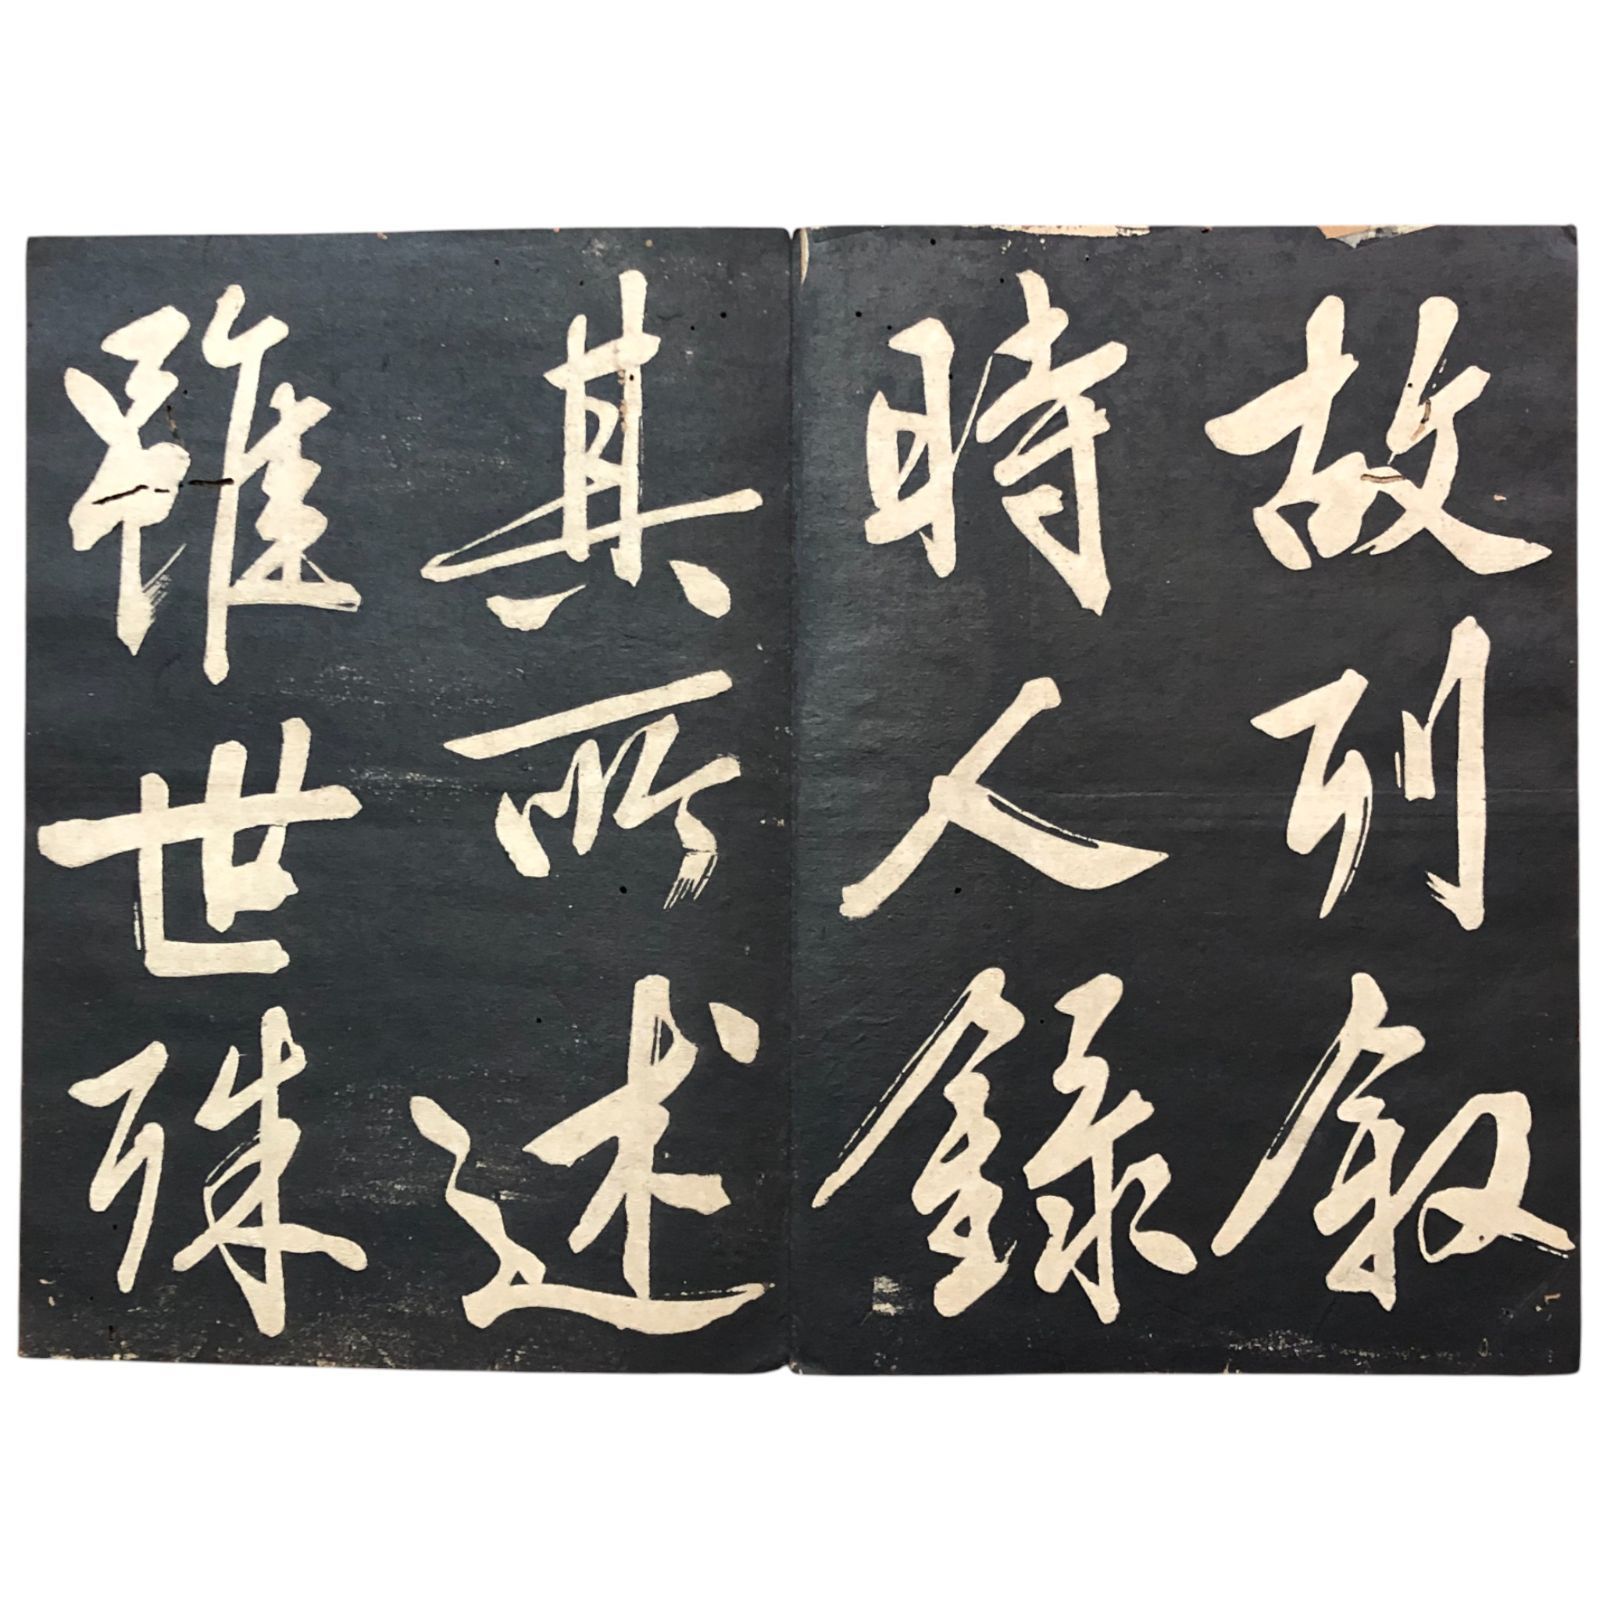 故列敘
時人錄
其所述
雖世殊